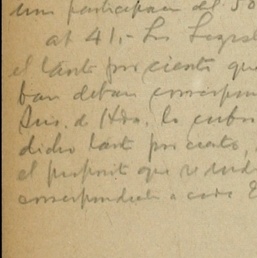 una participacion del 50
at 41,- Los Legisl
el tanto por ciento que
ban deban correspon
Sus. de Hda. la cubr
dicho tanto por ciento,
el proposito que se
correspondiente a cada